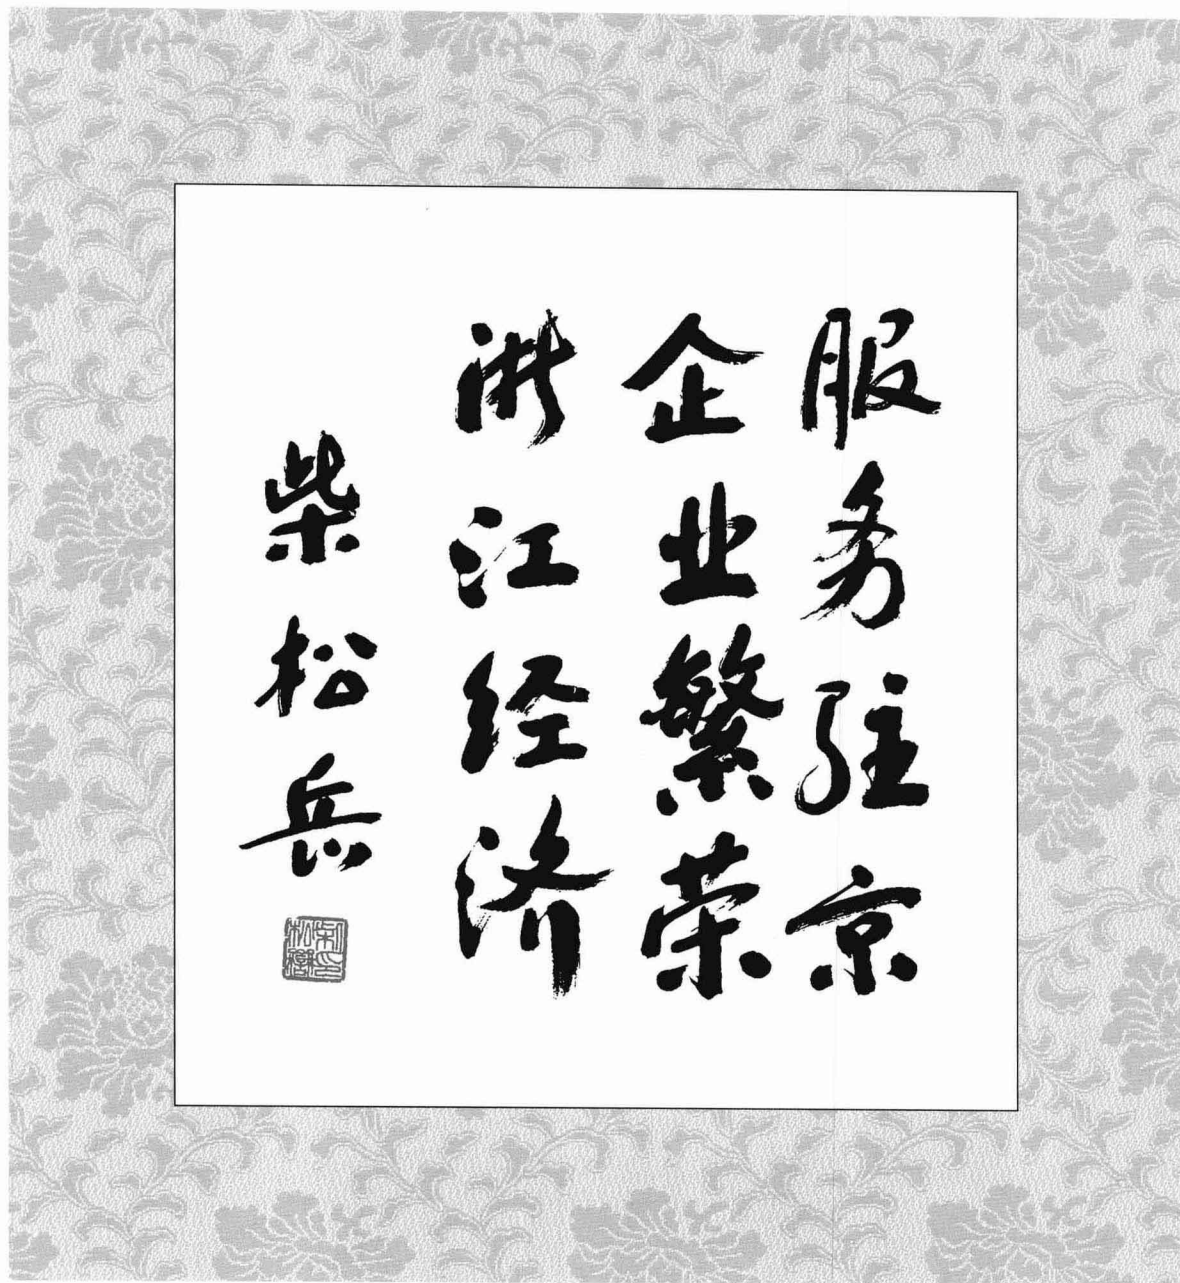 服务驻京
企业繁荣
浙江经济
柴松岳